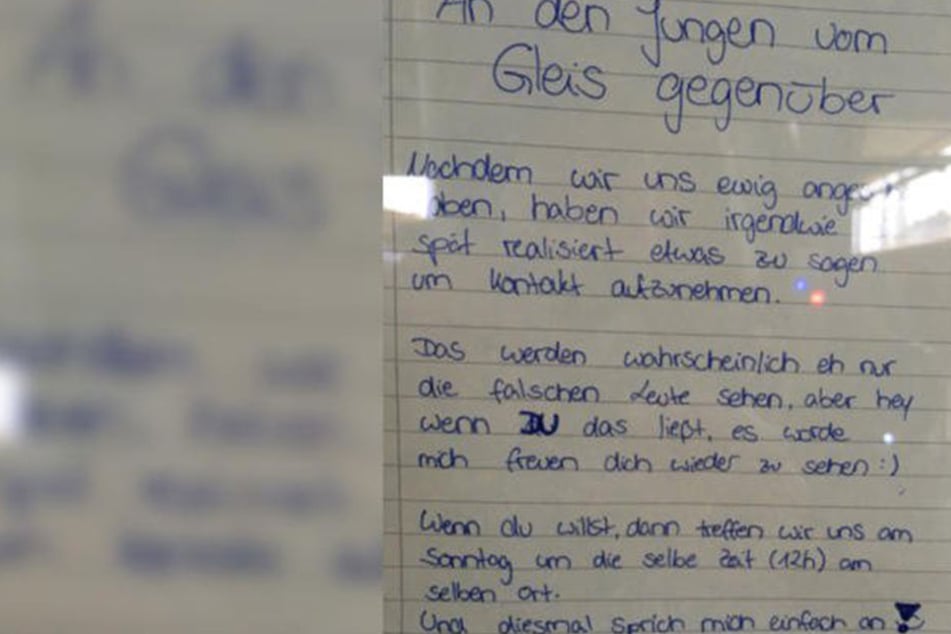 An den Jungen vom
Gleis gegenüber
Nachdem wir uns ewig
haben, haben wir irgendwie
spät realisiert etwas zu sagen
um Kontakt aufzunehmen.
Das werden wahrscheinlich eh nur
die falschen Leute sehen, aber hey
wenn DU das ließt, es würde
mich freuen dich wieder zu sehen :)
Wenn du willst, dann treffen wir uns am
Sonntag um die selbe Zeit (12h) am
selben Ort.
Und diesmal sprich mich einfach an!